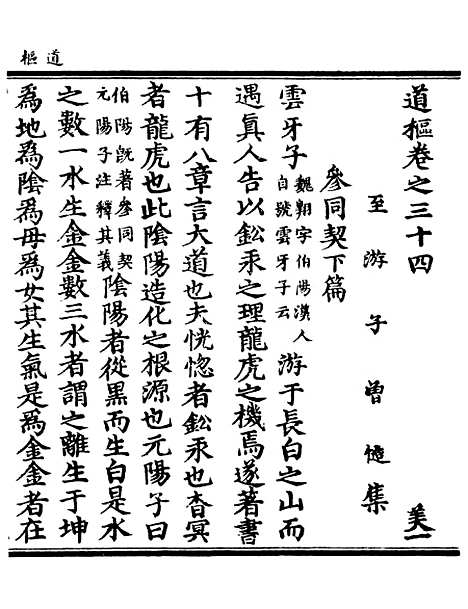 道樞
道樞卷之三十四 美一
至游子曾慥集
參同契下篇
雲牙子魏翺字伯陽漢人自號雲牙子云游于長白之山而
遇眞人告以鈆汞之理龍虎之機焉遂著書
十有八章言大道也夫恍惚者鈆汞也杳冥
者龍虎也此隂陽造化之根源也元陽子曰
伯陽旣著參同契元陽子注釋其義隂陽者從黒而生白是水
之數一水生金金數三水者謂之離生于坤
爲地爲隂爲母爲女其生氣是爲金金者在